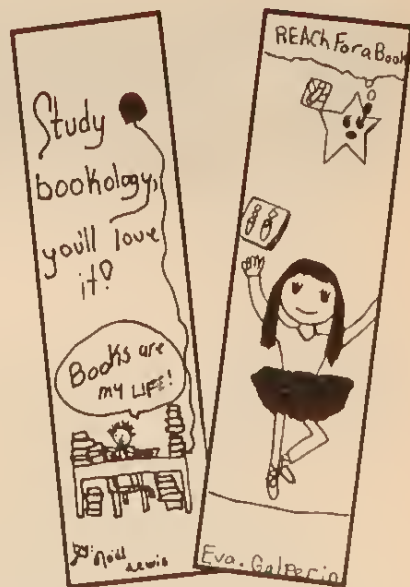 Study
bookology,
you'll love
it!
Books are
my LIFE!
Lewis
REACh For a Book
Eva. Galperin